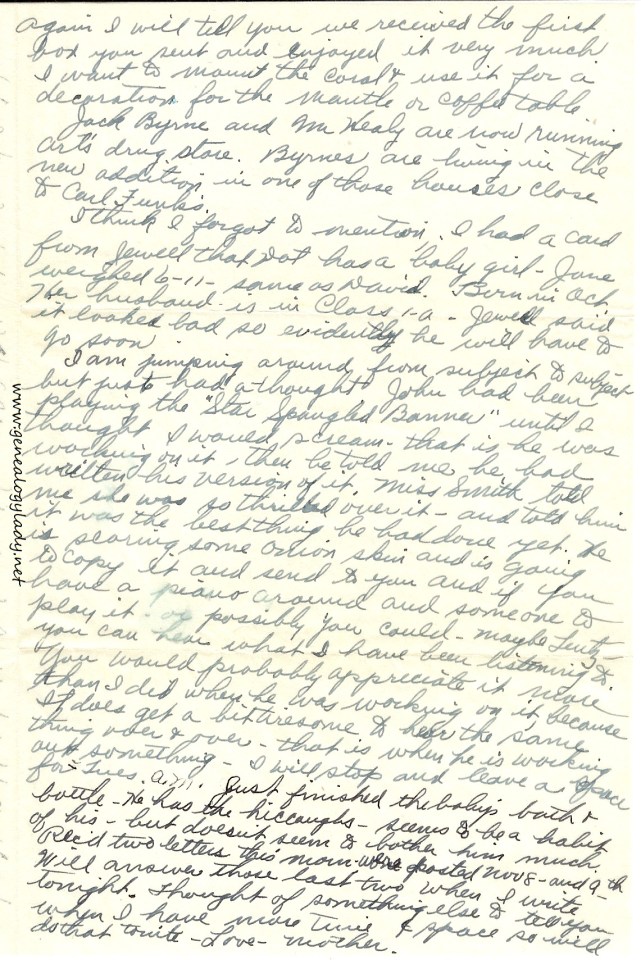 again I will tell you we received the first
box you sent and enjoyed it very much
I want to mount the coral & use it for a
decoration for the mantle or coffee table
Jack Byrne and Wm Nealy are now running
art's drug store. Byrnes are living in the
new addition in one of those houses close
to Carl Funks.
I think I forgot to mention, I had a card
from Jewell that Dot has a baby girl - Jane
weighed 6-11 - same as David. Born in Oct.
Her husband is in Class 1-a - Jewell said
it looked bad so evidently he will have to
go soon
I am jumping around from subject to subject
but just had a thought. John had been
playing the "Star Spangled Banner" until I
thought I would scream - that is he was
working on it then he told me he had
written his version of it. Miss Smith told
me she was so thrilled over it - and told him
it was the best thing he had done yet. He
is scoring some onion skin and is going
to copy it and send to you and if you
have a piano around and someone to
play it - or possibly you could - maybe
you can hear what I have been listening to.
You would probably appreciate it more
than I did when he was working on it because
It does get a bit tiresome to hear the same
thing over & over - that is when he is working
out something - I will stop and leave a space
for Tues. a.m. Just finished the baby's bath &
bottle - He has the hiccoughs - seems to be a habit
of his - but doesn't seem to bother him much.
Rec'd two letters this morn - were posted Nov 8 - and 9-th
Will answer those last two when I write
tonight. Thought of something else to tell you
when I have more time & space so will
do that tonite - Love - Mother.
www.genealogylady.net